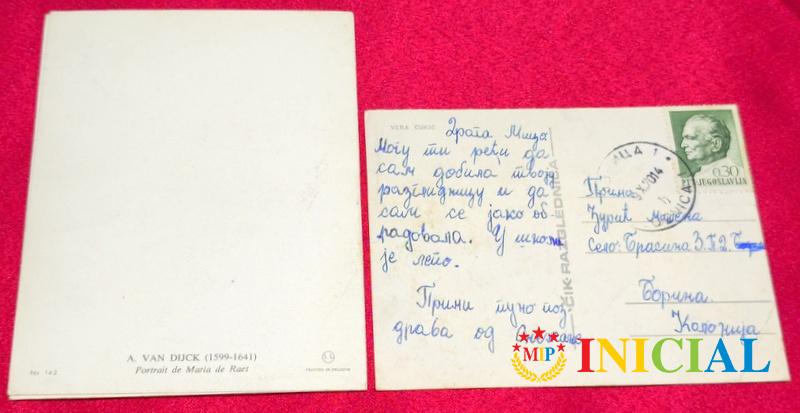 A. VAN DIJCK (1599-1641)
Portrait de Maria de Raet
PRINTED IN BELGIUM
VERA ĆUKIĆ
Драга Мица
Могу ти рећи да
сам добила твоју
разгледницу и да
сам се јако об-
радовала. У школи
је лепо.
Прими пуно поз-
драва од
ČIK-RAZGLEDNICA
0.30
JUGOSLAVIJA
Прима
Ђурић
Село: Брасина З.П2.
Борина
MIP
INICIAL